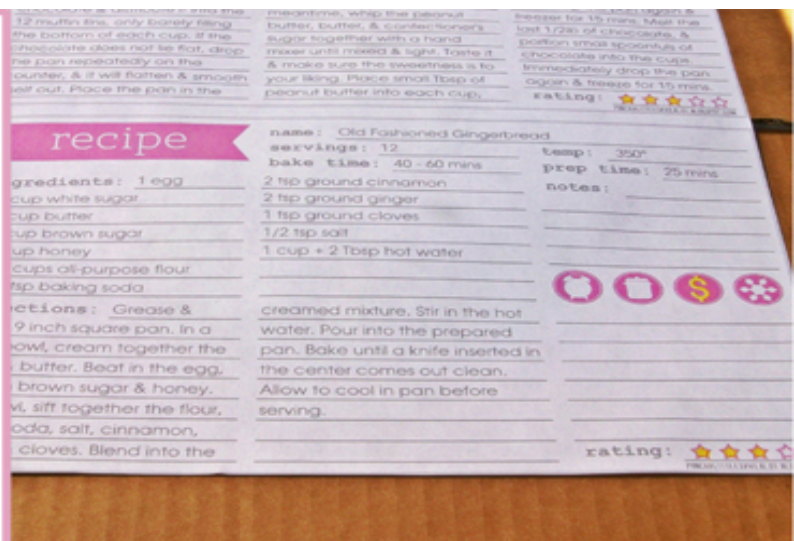 12 muffin tins, only barely filling
the bottom of each cup. If the
chocolate does not lie flat, drop
he pan repeatedly on the
ounter, & it will flatten & smooth
elf out. Place the pan in the
meantime, whip the peanut
butter, butter, & confectioner's
sugar together with a hand
mixer until mixed & light. Taste it
& make sure the sweetness is to
your liking. Place small Tbsp of
peanut butter into each cup,
freezer for 15 mins. Melt the
last 1/2 of chocolate, &
portion small spoonfuls of
chocolate into the cups.
Immediately drop the pan
again & freeze for 15 mins.
rating:
recipe
name: Old Fashioned Gingerbread
servings: 12
bake time: 40 - 60 mins
temp: 350°
prep time: 25 mins
notes:
gredients: 1 egg
cup white sugar
cup butter
cup brown sugar
up honey
cups all-purpose flour
tsp baking soda
2 tsp ground cinnamon
2 tsp ground ginger
1 tsp ground cloves
1/2 tsp salt
1 cup + 2 Tbsp hot water
$
ections: Grease &
9 inch square pan. In a
owl, cream together the
butter. Beat in the egg,
brown sugar & honey.
wl, sift together the flour,
oda, salt, cinnamon,
cloves. Blend into the
creamed mixture. Stir in the hot
water. Pour into the prepared
pan. Bake until a knife inserted in
the center comes out clean.
Allow to cool in pan before
serving.
rating: